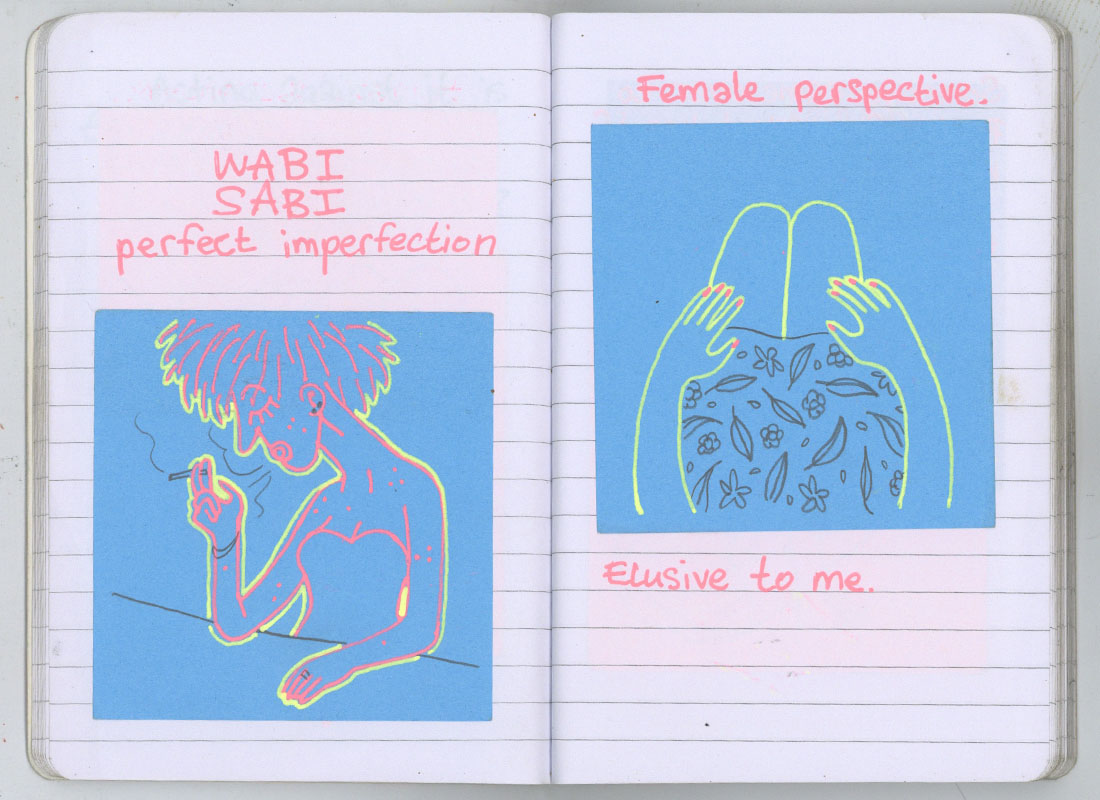 WABI
SABI
perfect imperfection
Female perspective.
Elusive to me.